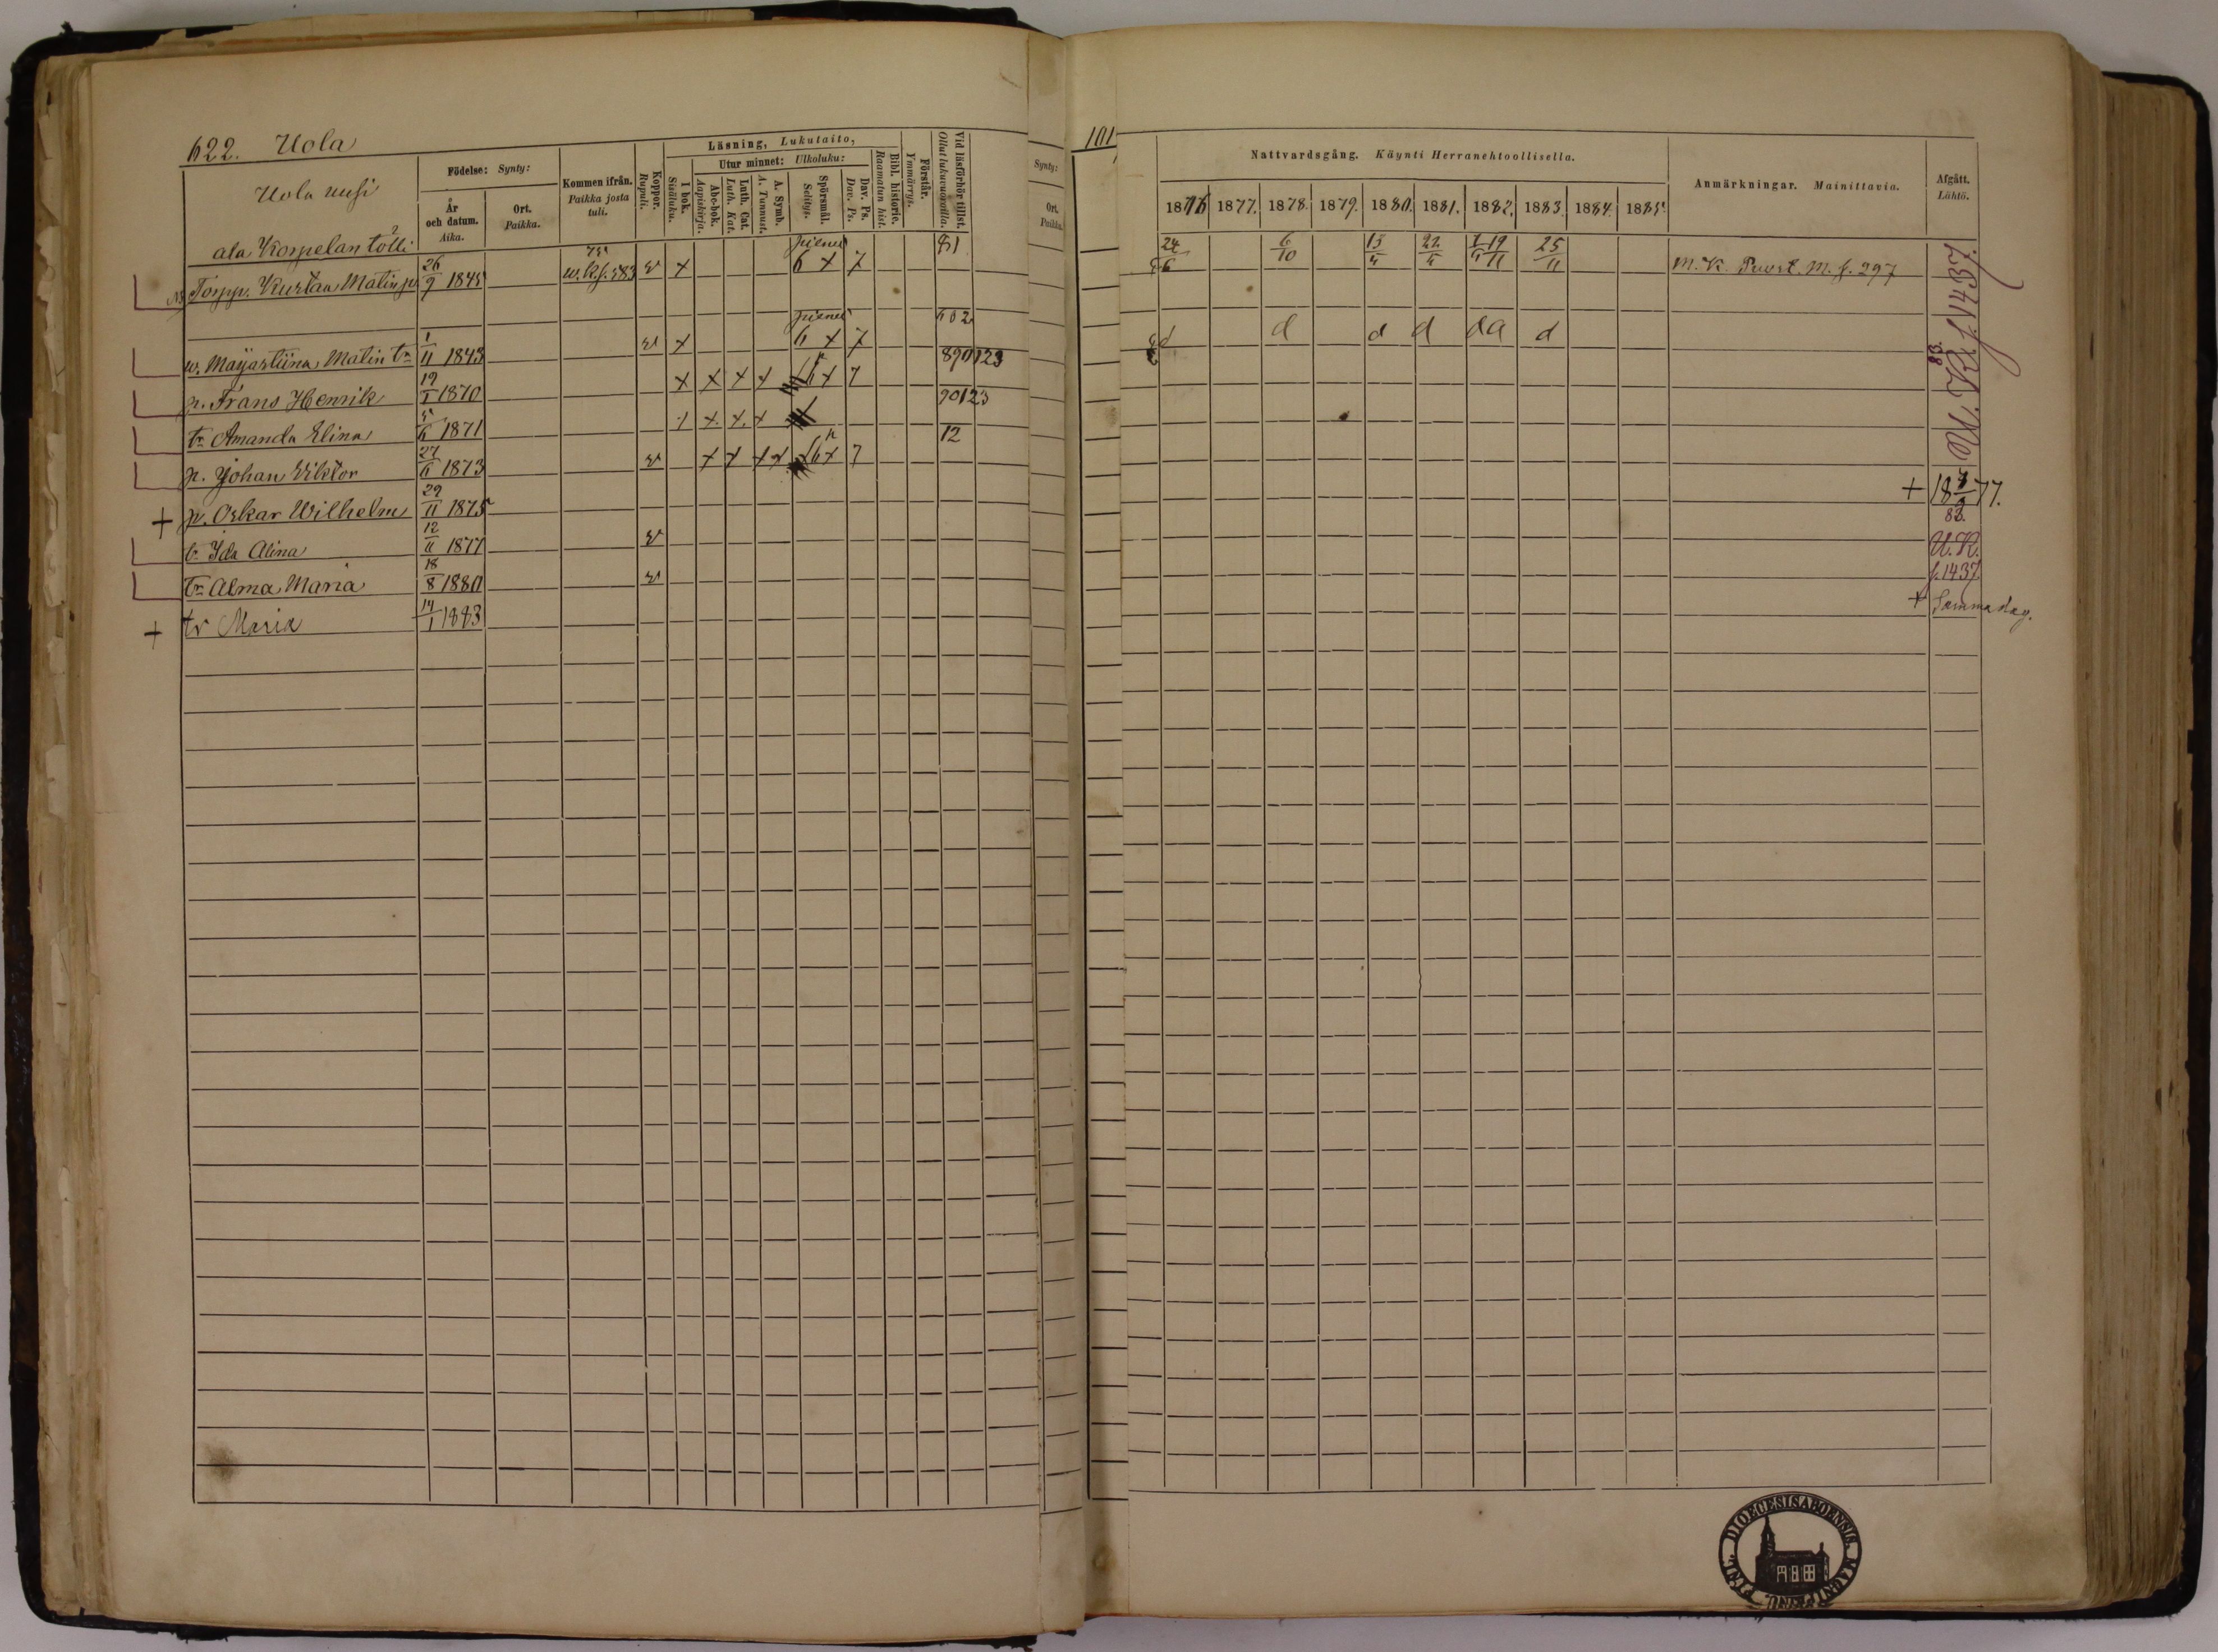 622. Uola
Uola uusi
ala Korpelan tölli
Födelse: Synty:
År och datum. Aika.
Ort. Paikka.
Kommen ifrån. Paikka josta tuli.
Koppor. Rupuli.
Läsning, Lukutaito,
I bok. Sisäluku.
Utur minnet: Ulkoluku:
Abc-bok. Aapiskirja.
Luth. Cat. Luth. Kat.
A. Symb. A. Tunnust.
Spörsmål. Selitys.
Dav. Ps. Dav. Ps.
Bibl. historie. Raamatun hist.
Förstår. Ymmärrys.
Vid läsförhör tillst. Ollut lukuvuoroilla.
Synty:
Ort. Paikka.
101
Nattvardsgång. Käynti Herranehtoollisella.
1876 1877. 1878. 1879. 1880. 1881. 1882. 1883. 1884. 1885.
Anmärkningar. Mainittavia.
Afgått. Lähtö.
Torpp. Kustaa Matin p. 26/9 1845 75 w.k.s. 583 v x pienen 6 x 7 81 24/6 6/10 13/4 22/5 19/11 25/11 M. K. f. 297
w. Majastiina Matin tr 1/11 1843 v x pienen 6 x 7 602 d d d d da d
p. Frans Henrik 19/1 1870 x x x x 6 x 7 890123
tr Amanda Elina 5/6 1871 x x x 90123
p. Johan Viktor 27/6 1873 v x x x x 6 x 7 12
+ p. Oskar Wilhelm 29/11 1875 + 1877.
tr Ida Alina 12/11 1877 v 83. U.K.
tr Alma Maria 18/8 1880 v f. 1437
+ tr Maria 14/1 1883 + Samma dag.
83. U.K. f. 1437
DIOECESIS ABOENSIS